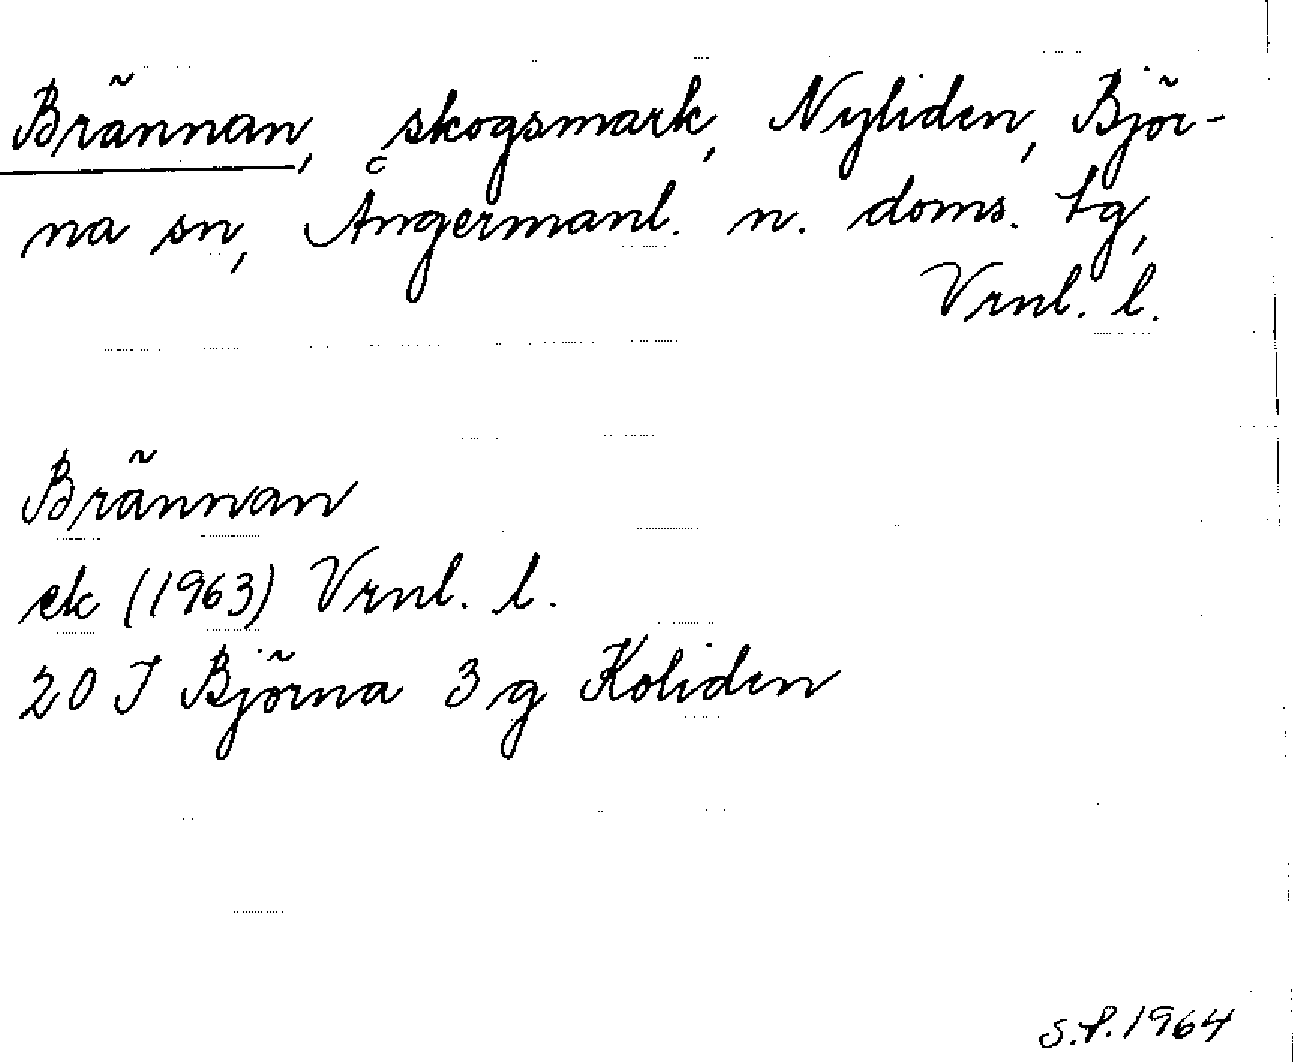 Brännan, skogsmark, Nyliden, Björ-
na sn, Ångermanl. n. doms. tg,
Vrnl. l.
Brännan
ek (1963) Vrnl. l.
20 I Björna 3 g Koliden
S.P. 1964